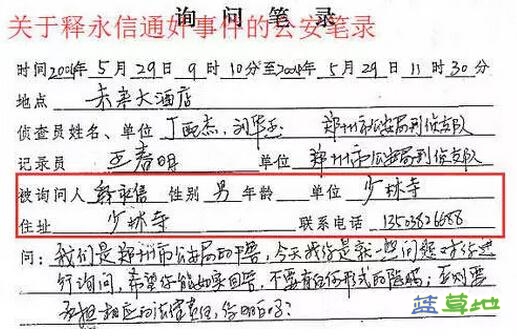 询问笔录
关于释永信通奸事件的公安笔录
时间2004年5月29日9时10分至2004年5月29日11时30分
地点 未来大酒店
侦查员姓名、单位 郑州市公安局刑侦支队
记录员 王春明 单位 郑州市公安局刑侦支队
被询问人 释永信 性别 男 年龄 单位 少林寺
住址 少林寺 联系电话 13503826688
问：我们是郑州市公安局的干警，今天找你是就一些问题对你进
行询问，希望你能如实回答，不要有任何形式的隐瞒；否则要
承担相应的法律责任，你明白吗？
蓝草地